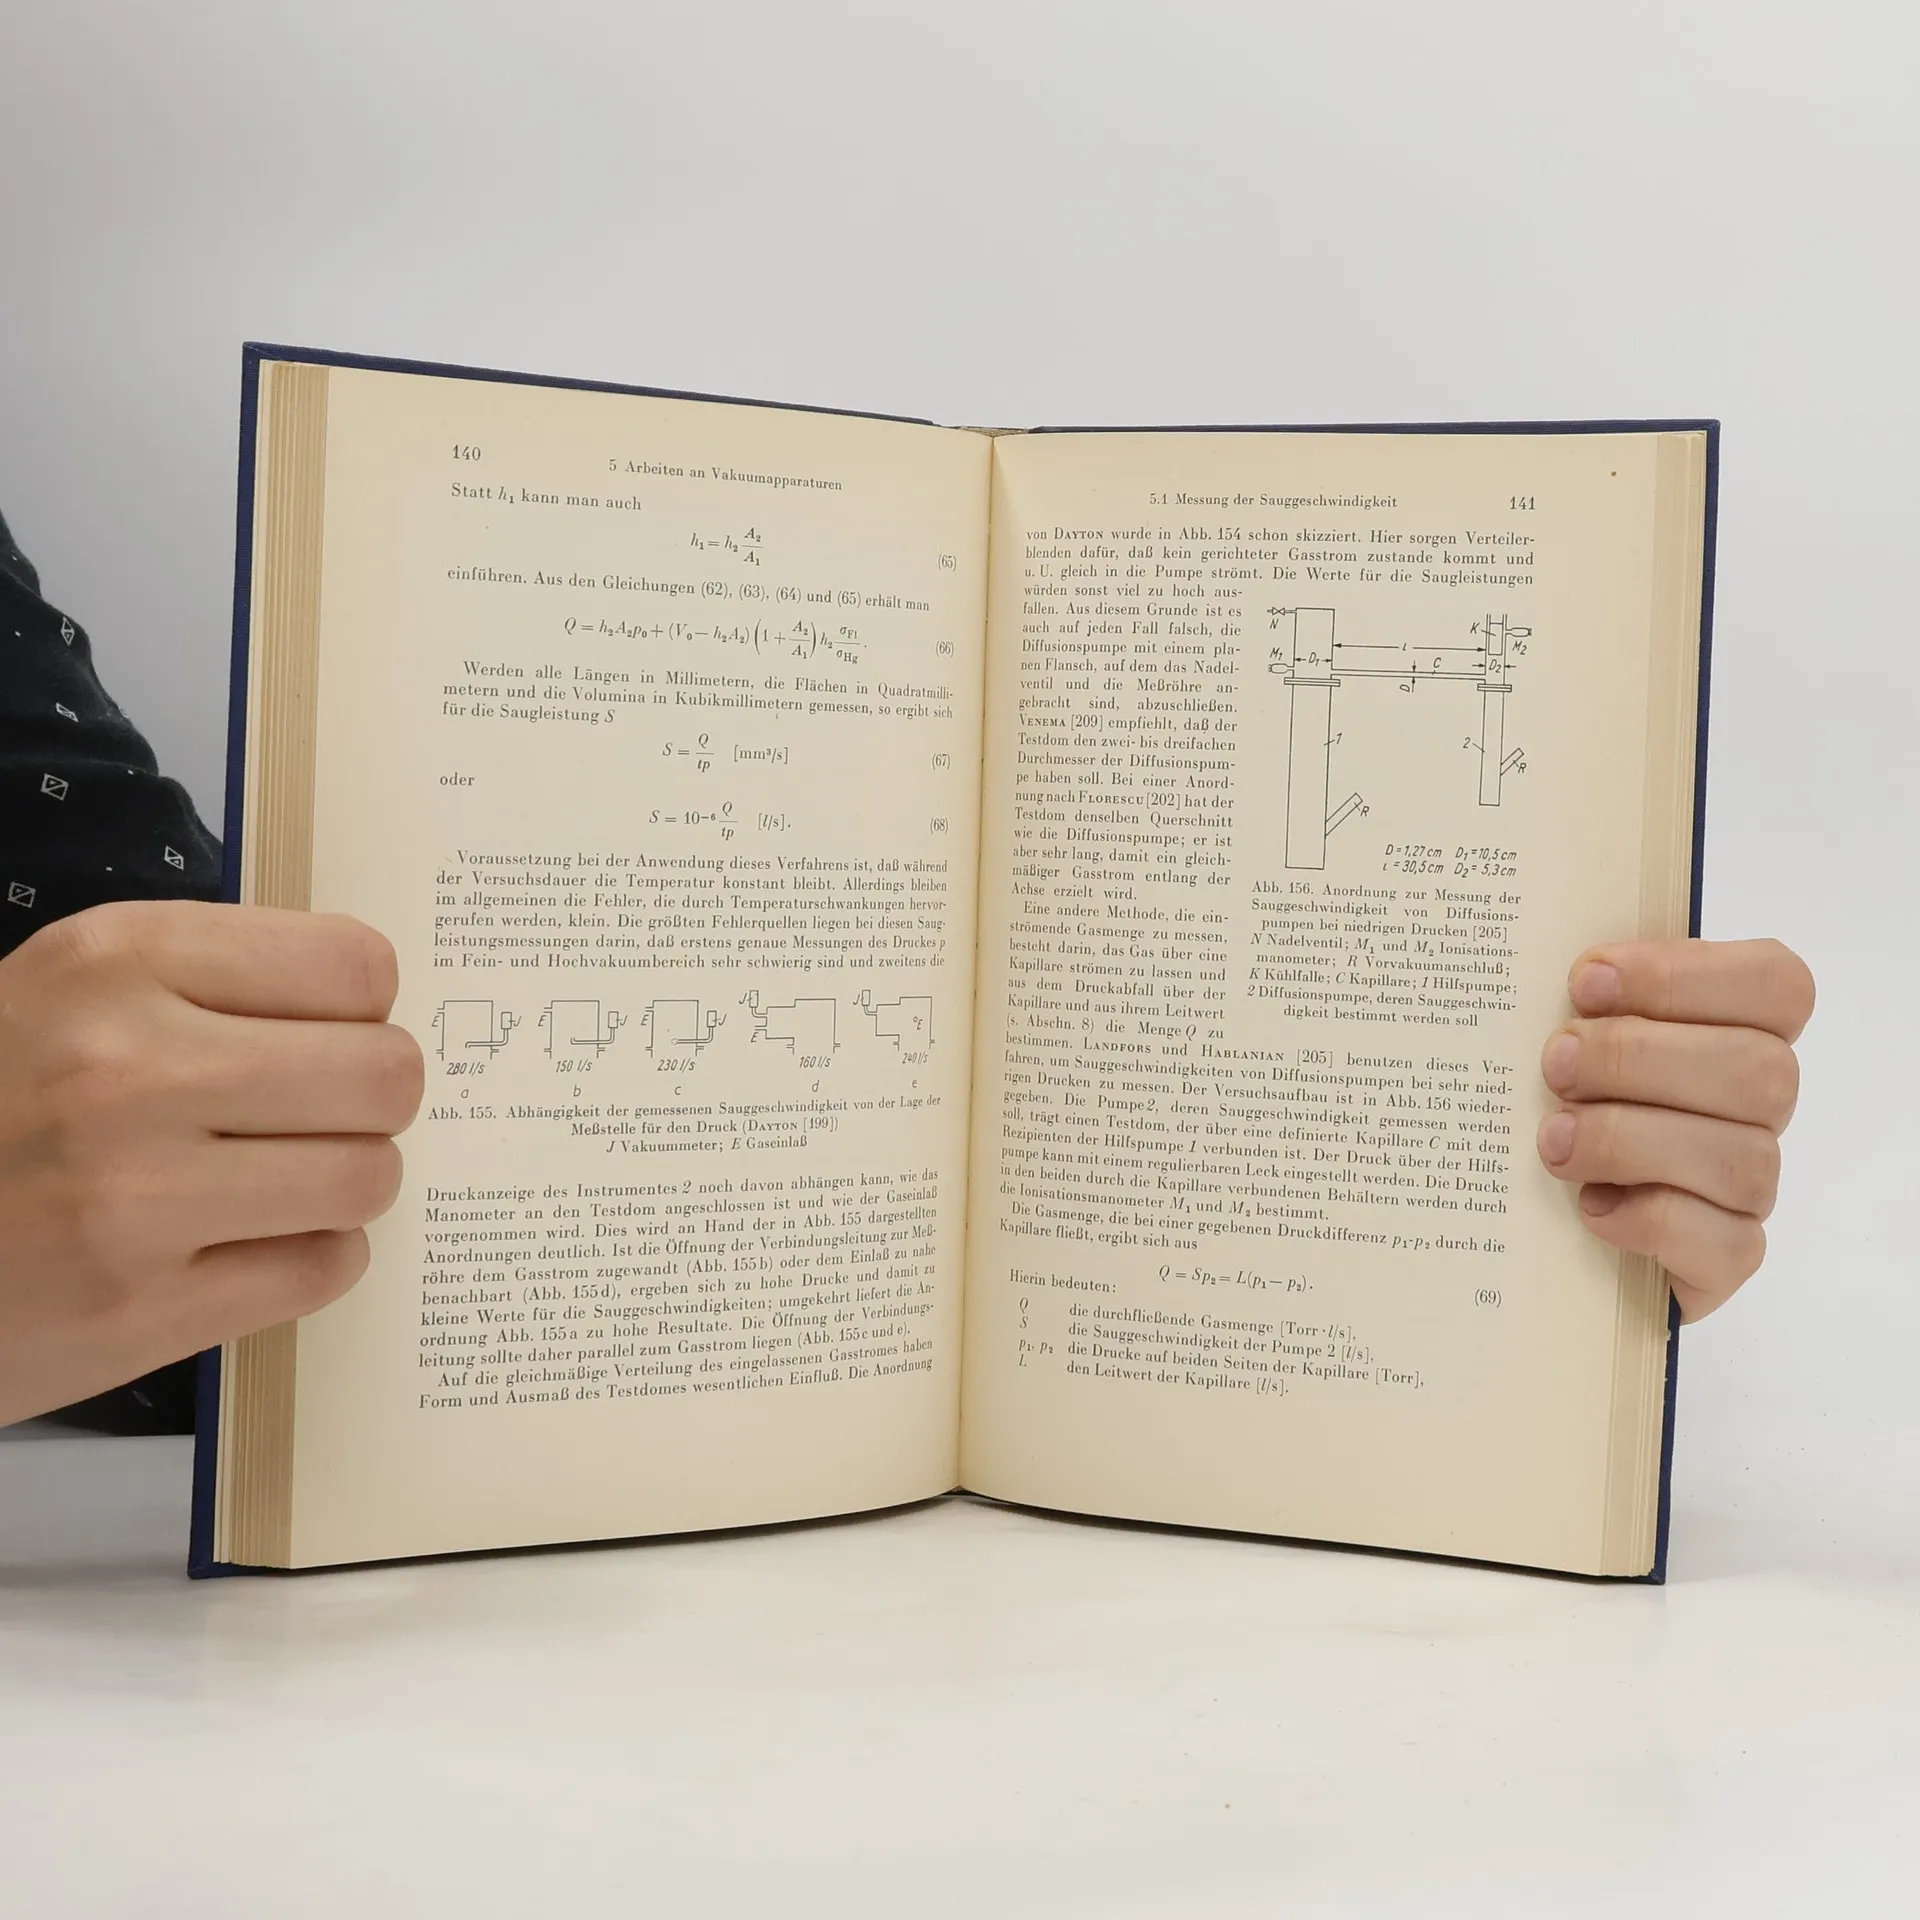 140
5 Arbeiten an Vakuumapparaturen
Statt h₁ kann man auch
h₁ = h₂ A₂/A₁ (65)
einführen. Aus den Gleichungen (62), (63), (64) und (65) erhält man
Q = h₂A₂p₀ + (V₀ — h₂A₂) (1 + A₂/A₁) h₂ σFl/σHg . (66)
Werden alle Längen in Millimetern, die Flächen in Quadratmilli-
metern und die Volumina in Kubikmillimetern gemessen, so ergibt sich
für die Saugleistung S
S = Q/tp [mm³/s] (67)
oder
S = 10⁻⁶ Q/tp [l/s]. (68)
Voraussetzung bei der Anwendung dieses Verfahrens ist, daß während
der Versuchsdauer die Temperatur konstant bleibt. Allerdings bleiben
im allgemeinen die Fehler, die durch Temperaturschwankungen hervor-
gerufen werden, klein. Die größten Fehlerquellen liegen bei diesen Saug-
leistungsmessungen darin, daß erstens genaue Messungen des Druckes p
im Fein- und Hochvakuumbereich sehr schwierig sind und zweitens die
E J E J E J J E J E
280 l/s 150 l/s 230 l/s 160 l/s 240 l/s
a b c d e
Abb. 155. Abhängigkeit der gemessenen Sauggeschwindigkeit von der Lage der
Meßstelle für den Druck (DAYTON [199])
J Vakuummeter; E Gaseinlaß
Druckanzeige des Instrumentes 2 noch davon abhängen kann, wie das
Manometer an den Testdom angeschlossen ist und wie der Gaseinlaß
vorgenommen wird. Dies wird an Hand der in Abb. 155 dargestellten
Anordnungen deutlich. Ist die Öffnung der Verbindungsleitung zur Meß-
röhre dem Gasstrom zugewandt (Abb. 155b) oder dem Einlaß zu nahe
benachbart (Abb. 155d), ergeben sich zu hohe Drucke und damit zu
kleine Werte für die Sauggeschwindigkeiten; umgekehrt liefert die An-
ordnung Abb. 155a zu hohe Resultate. Die Öffnung der Verbindungs-
leitung sollte daher parallel zum Gasstrom liegen (Abb. 155c und e).
Auf die gleichmäßige Verteilung des eingelassenen Gasstromes haben
Form und Ausmaß des Testdomes wesentlichen Einfluß. Die Anordnung
5.1 Messung der Sauggeschwindigkeit
141
von DAYTON wurde in Abb. 154 schon skizziert. Hier sorgen Verteiler-
blenden dafür, daß kein gerichteter Gasstrom zustande kommt und
u. U. gleich in die Pumpe strömt. Die Werte für die Saugleistungen
würden sonst viel zu hoch aus-
fallen. Aus diesem Grunde ist es
auch auf jeden Fall falsch, die
Diffusionspumpe mit einem pla-
nen Flansch, auf dem das Nadel-
ventil und die Meßröhre an-
gebracht sind, abzuschließen.
VENEMA [209] empfiehlt, daß der
Testdom den zwei- bis dreifachen
Durchmesser der Diffusionspum-
pe haben soll. Bei einer Anord-
nung nach FLORESCU [202] hat der
Testdom denselben Querschnitt
wie die Diffusionspumpe; er ist
aber sehr lang, damit ein gleich-
mäßiger Gasstrom entlang der
Achse erzielt wird.
Eine andere Methode, die ein-
strömende Gasmenge zu messen,
besteht darin, das Gas über eine
Kapillare strömen zu lassen und
aus dem Druckabfall über der
Kapillare und aus ihrem Leitwert
(s. Abschn. 8) die Menge Q zu
N
K
M₂
M₁
D₁
l
C
D₂
D
1
2
R
R
D = 1,27 cm D₁ = 10,5 cm
l = 30,5 cm D₂ = 5,3 cm
Abb. 156. Anordnung zur Messung der
Sauggeschwindigkeit von Diffusions-
pumpen bei niedrigen Drucken [205]
N Nadelventil; M₁ und M₂ Ionisations-
manometer; R Vorvakuumanschluß;
K Kühlfalle; C Kapillare; 1 Hilfspumpe;
2 Diffusionspumpe, deren Sauggeschwin-
digkeit bestimmt werden soll
bestimmen. LANDFORS und HABLANIAN [205] benutzen dieses Ver-
fahren, um Sauggeschwindigkeiten von Diffusionspumpen bei sehr nied-
rigen Drucken zu messen. Der Versuchsaufbau ist in Abb. 156 wieder-
gegeben. Die Pumpe 2, deren Sauggeschwindigkeit gemessen werden
soll, trägt einen Testdom, der über eine definierte Kapillare C mit dem
Rezipienten der Hilfspumpe 1 verbunden ist. Der Druck über der Hilfs-
pumpe kann mit einem regulierbaren Leck eingestellt werden. Die Drucke
in den beiden durch die Kapillare verbundenen Behältern werden durch
die Ionisationsmanometer M₁ und M₂ bestimmt.
Die Gasmenge, die bei einer gegebenen Druckdifferenz p₁-p₂ durch die
Kapillare fließt, ergibt sich aus
Q = Sp₂ = L(p₁ — p₂). (69)
Hierin bedeuten:
Q die durchfließende Gasmenge [Torr · l/s],
S die Sauggeschwindigkeit der Pumpe 2 [l/s],
p₁, p₂ die Drucke auf beiden Seiten der Kapillare [Torr],
L den Leitwert der Kapillare [l/s].